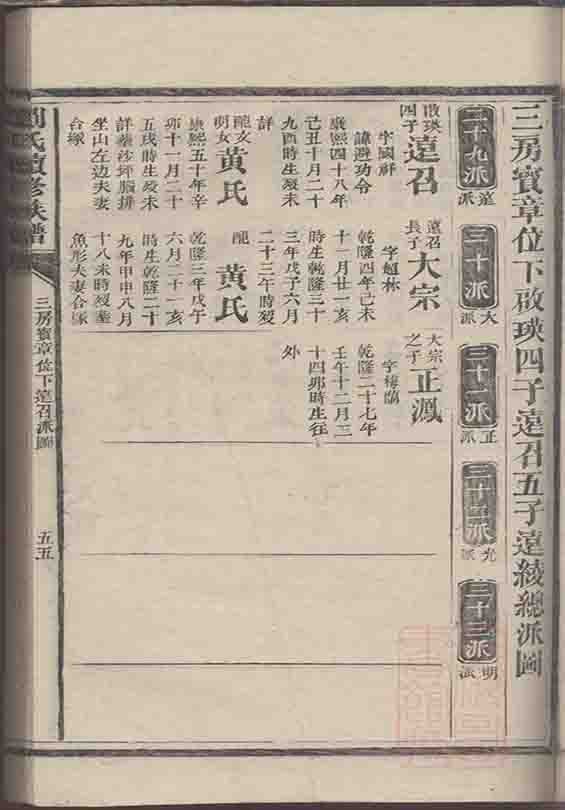 三房賓章位下啟瑛四子遠召五子遠綾總派圖
二十九派
遠派
三十派
大派
三十一派
正派
三十二派
光派
三十三派
明派
啟瑛四子遠召
字國祥
諱避功令
康熙四十八年
己丑十月二十
九酉時生歿未
詳
配文明女黃氏
康熙五十年辛
卯十一月二十
五戌時生歿未
詳葬沙坪腦排
坐山左边夫妻
合塚
遠召長子大宗
字超林
乾隆四年己未
十一月廿一亥
時生乾隆三十
三年戊子六月
二十三午時歿
配黃氏
乾隆三年戊午
六月二十一亥
時生乾隆二十
九年甲申八月
十八未時歿葬
魚形夫妻合塚
大宗之子正鳳
乾隆二十七年
壬午十二月三
十四卯時生往
外
氏續修族譜
三房賓章位下遠召派圖
五五